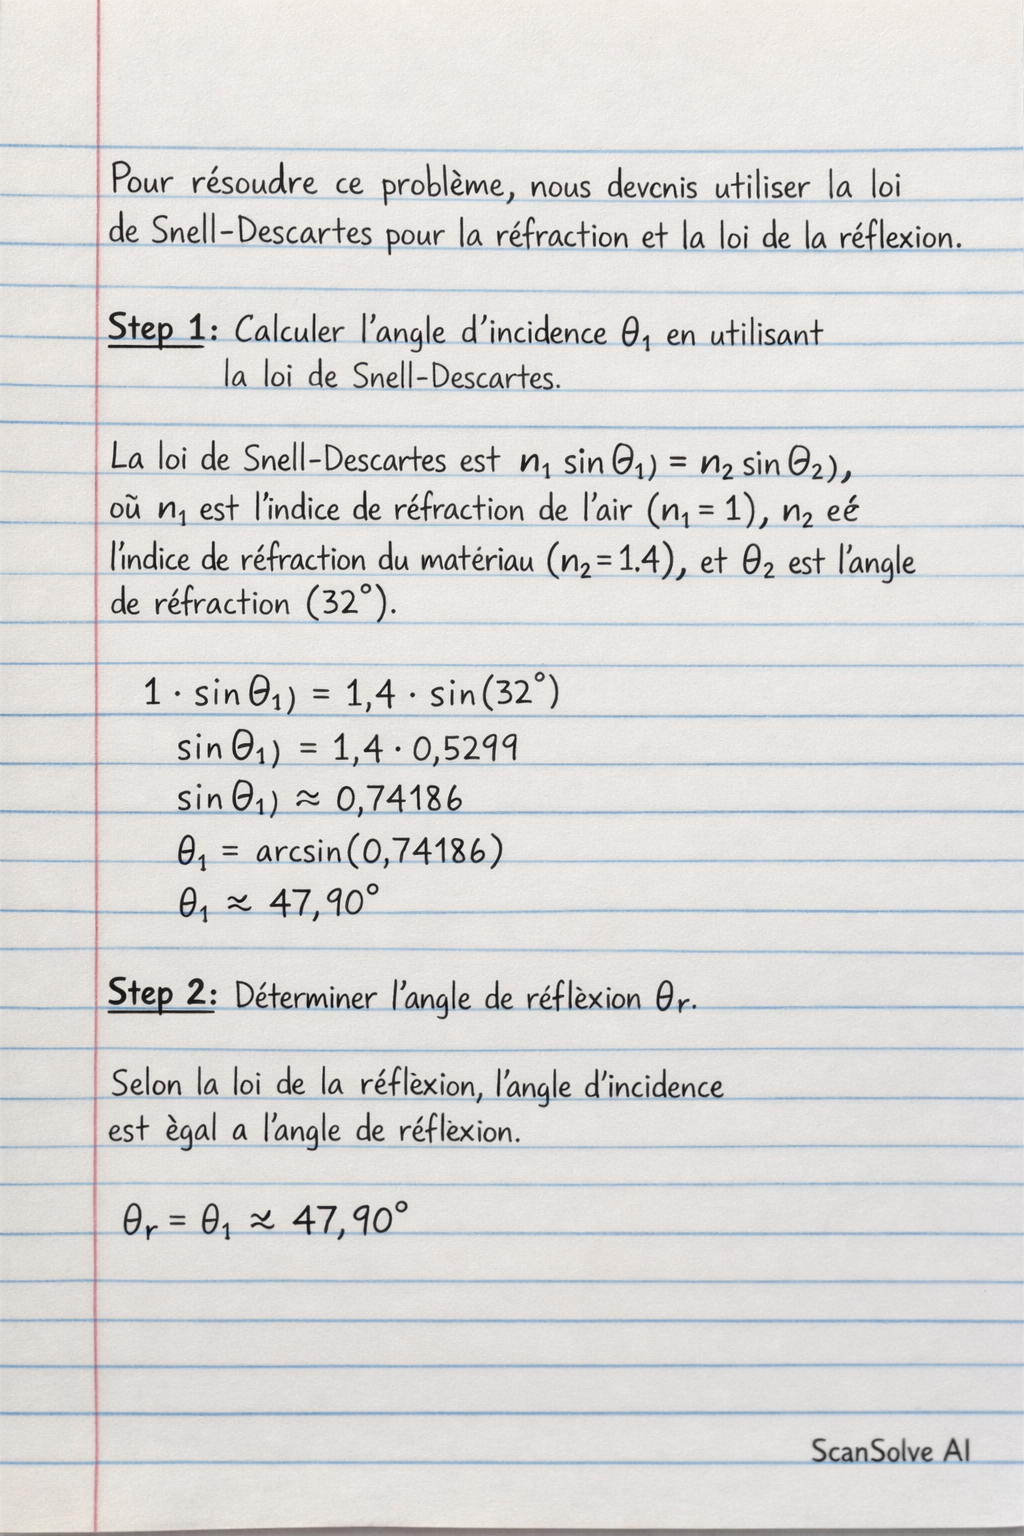 Pour résoudre ce problème, nous devcnis utiliser la loi
de Snell-Descartes pour la réfraction et la loi de la réflexion.
Step 1: Calculer l'angle d'incidence θ₁ en utilisant
la loi de Snell-Descartes.
La loi de Snell-Descartes est n₁ sin θ₁) = n₂ sin θ₂),
oũ n₁ est l'indice de réfraction de l'air (n₁ = 1), n₂ eé
l'indice de réfraction du matériau (n₂ = 1.4), et θ₂ est l'angle
de réfraction (32°).
1 · sin θ₁) = 1,4 · sin(32°)
sin θ₁) = 1,4 · 0,5299
sin θ₁) ≈ 0,74186
θ₁ = arcsin(0,74186)
θ₁ ≈ 47,90°
Step 2: Déterminer l'angle de réflèxion θr.
Selon la loi de la réflèxion, l'angle d'incidence
est ègal a l'angle de réflèxion.
θr = θ₁ ≈ 47,90°
ScanSolve AI